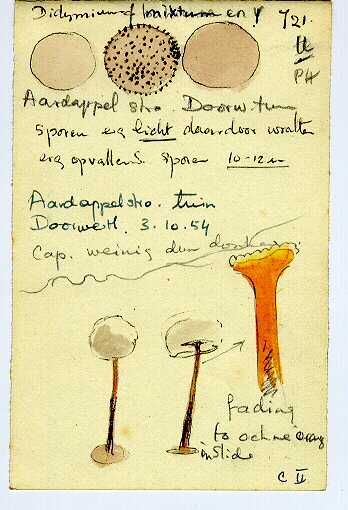 Didymium mixtum en
721.
PH
Aardappel stro. Doorw. tuin
Sporen erg licht daardoor wratten
erg opvallend. Sporen 10-12 u
Aardappelstro. tuin
Doorwerth. 3.10.54
Cap. weinig dun donker
fading
to ochre orang
in slide
C II